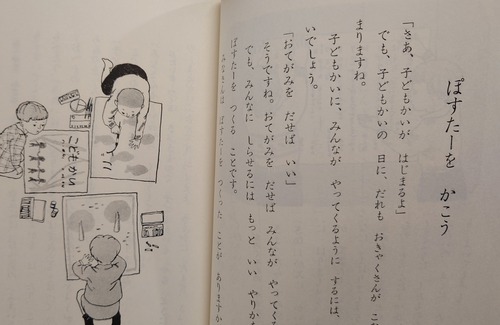 ぽすたーを かこう
「さあ、子どもかいが はじまるよ」
でも、子どもかいの 日に、だれも おきゃくさんが こ
まりますね。
子どもかいに、みんなが やってくるように するには、
いいでしょう。
「おてがみを だせば いい」
そうですね。おてがみを だせば みんなが やってく
でも、みんなに しらせるには もっと いい やりか
ぽすたーを つくる ことです。
みなさんは ぽすたーを つくった ことが ありますか
こどもかい